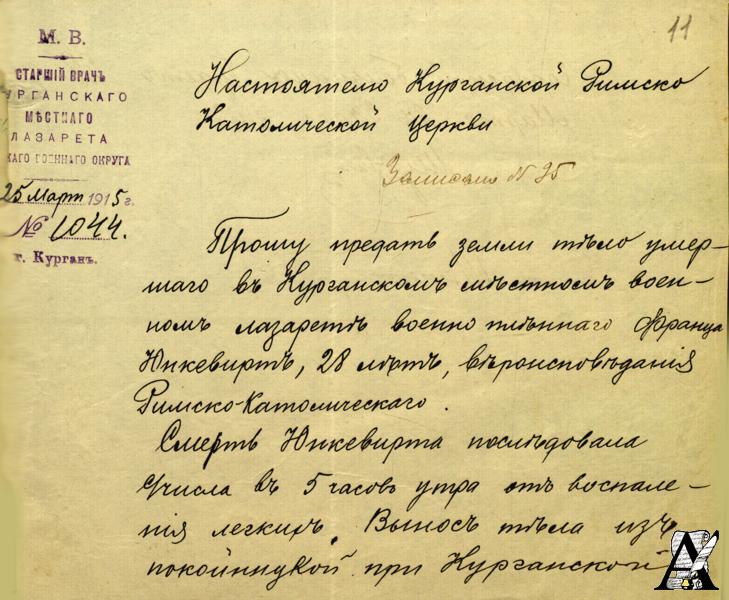 11
М. В.
СТАРШІЙ ВРАЧЪ
УРГАНСКАГО
МѢСТНАГО
ЛАЗАРЕТА
СКАГО ВОЕННАГО ОКРУГА
25 Март 1915 г.
№ 1044.
г. Курганъ.
Настоятелю Курганской Римско
Католической Церкви
Записано № 25
Прошу предать земли тѣло умер-
шаго въ Курганскомъ мѣстномъ воен-
номъ лазаретѣ военно плѣннаго Франца
Юнкевиртъ, 28 лѣтъ, вѣроисповѣданія
Римско-Католическаго.
Смерть Юнкевирта послѣдовала
числа въ 5 часовъ утра отъ воспале-
нія легкихъ. Выносъ тѣла изъ
покойницкой при Курганской